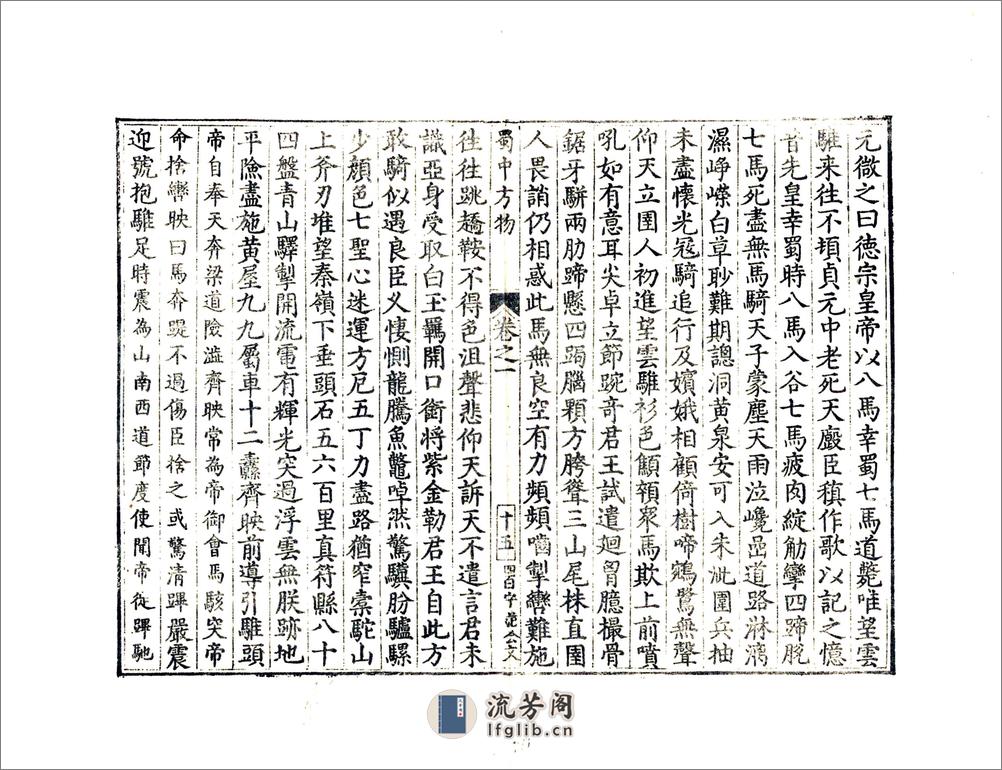 元微之曰德宗皇帝以八馬幸蜀七馬道斃唯望雲
騅来往不頓貞元中老死天廄臣稹作歌以記之憶
昔先皇幸蜀時八馬入谷七馬疲肉綻觔攣四蹄脱
七馬死盡無馬騎天子蒙塵天雨泣巉嵒道路淋漓
濕崢嶸白草眇難期謥洞黄泉安可入朱泚圍兵抽
未盡懷光冦騎追行及嬪娥相顧倚樹啼鵷鷺無聲
仰天立圉人初進望雲騅衫色顦顇衆馬欺上前噴
吼如有意耳尖卓立節踠奇君王試遣廻胷臆撮骨
鋸牙駢兩肋蹄懸四跼腦顆方胯聳三山尾株直圉
人畏誚仍相惑此馬無良空有力頻頻嚙掣轡難施
蜀中方物 卷之一 十五 四百字
徃徃跳趫鞍不得色沮聲悲仰天訴天不遣言君未
識亞身受取白玉羈開口銜將紫金勒君王自此方
敢騎似遇良臣乂悽惻龍騰魚鼈啅然驚驥肦驢騾
少顔色七聖心迷運方厄五丁力盡路猶窄橐駝山
上斧刃堆望秦嶺下垂頭石五六百里真符縣八十
四盤青山驛掣開流電有輝光突過浮雲無朕跡地
平險盡施黄屋九九屬車十二纛齊映前導引騅頭
帝自奉天奔梁道險澁齊映常為帝御會馬駭突帝
命捨轡映曰馬奔踶不過傷臣捨之或驚清蹕嚴震
迎號抱騅足時震為山南西道節度使聞帝從蹕馳
流芳阁
lfglib.cn